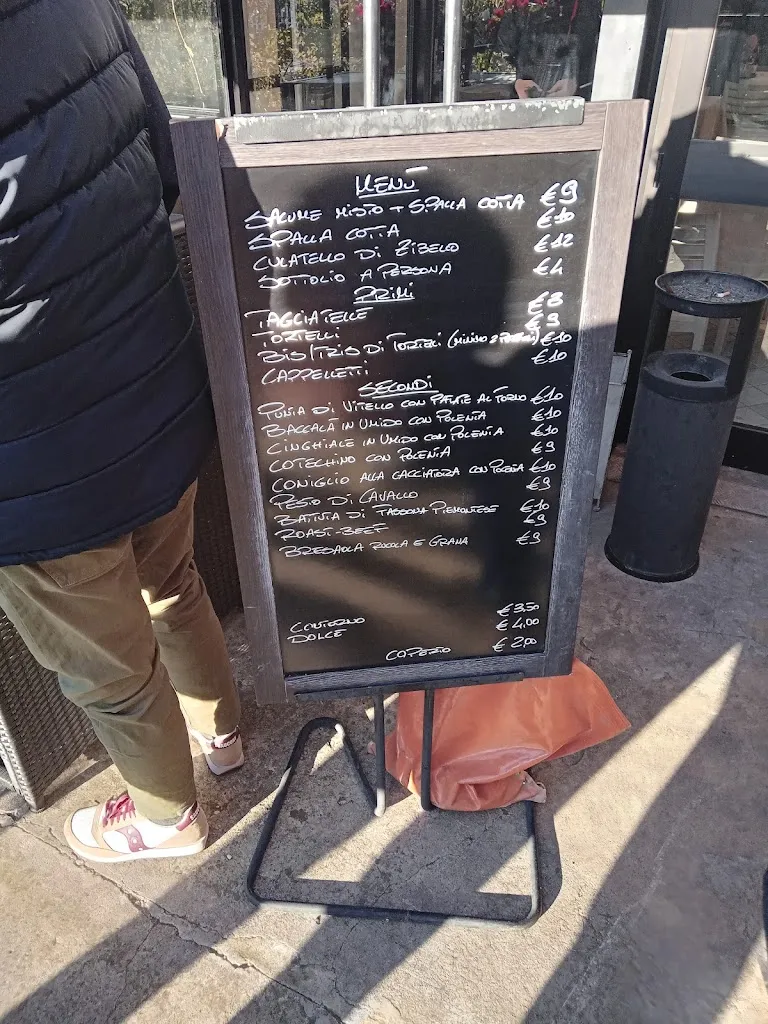 MENÙ
SALUME MISTO + SPALLA COTTA €9
SPALLA COTTA €10
CULATELLO DI ZIBELLO €12
SOTTOLIO A PERSONA €4
PRIMI
TAGLIATELLE €8
TORTELLI €9
BIS/TRIS DI TORTELLI (MINIMO 2 PERSONE) €10
CAPPELLETTI €10
SECONDI
PUNTA DI VITELLO CON PATATE AL FORNO €10
BACCALÀ IN UMIDO CON POLENTA €10
CINGHIALE IN UMIDO CON POLENTA €10
COTECHINO CON POLENTA €9
CONIGLIO ALLA CACCIATORA CON POLENTA €10
PESTO DI CAVALLO €9
BATTUTA DI FASSONA PIEMONTESE €10
ROAST-BEEF €9
BRESAOLA RUCOLA E GRANA €9
CONTORNO €3,50
DOLCE €4,00
COPERTO €2,00